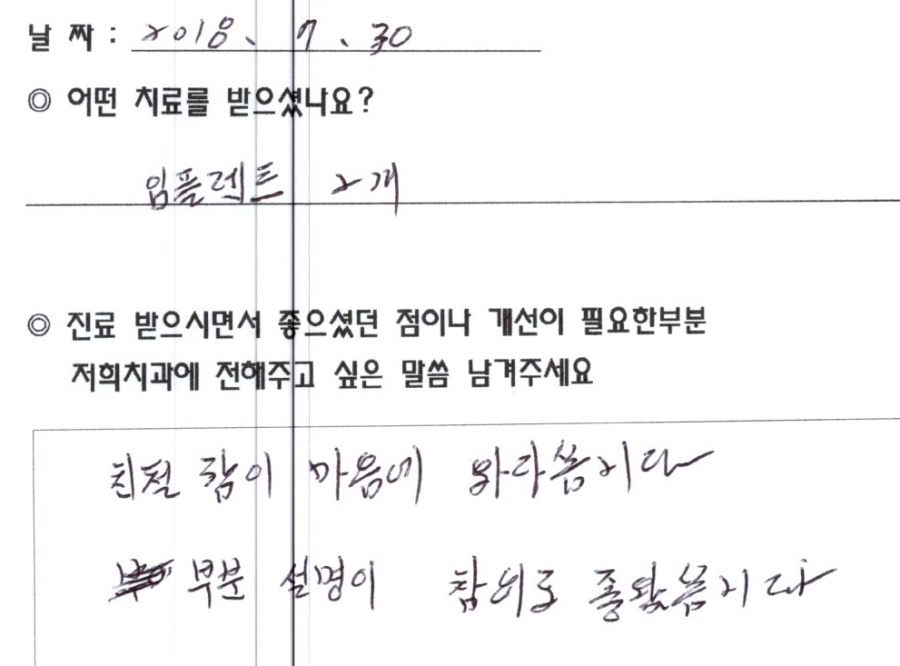 날 짜 : 2018. 7. 30
◎ 어떤 치료를 받으셨나요?
임플렌트 2개
◎ 진료 받으시면서 좋으셨던 점이나 개선이 필요한부분
저희치과에 전해주고 싶은 말씀 남겨주세요
친절 함이 마음에 와다씀니다
부분 설명이 참의로 좋왔씀니다